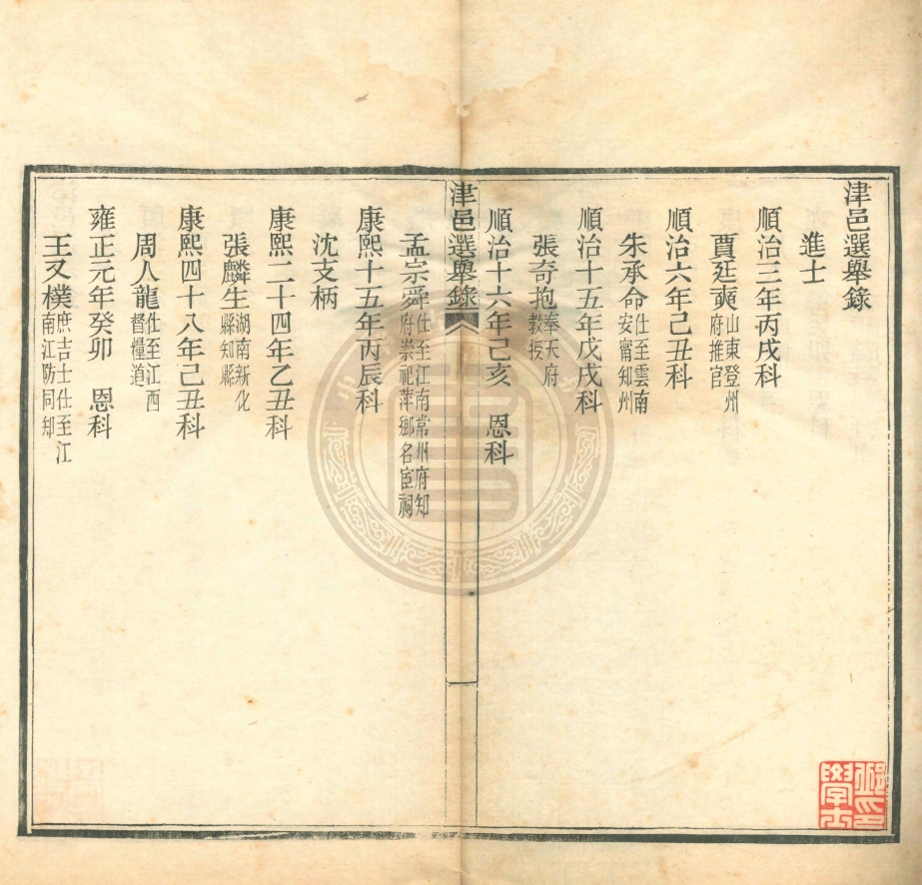 津邑選舉錄
進士
順治三年丙戌科
賈廷奭山東登州府推官
順治六年己丑科
朱承命仕至雲南安甯知州
順治十五年戊戌科
張奇抱奉天府教授
順治十六年己亥　恩科
津邑選舉錄
孟宗舜仕至江南常州府知府崇祀萍鄉名宦祠
康熙十五年丙辰科
沈支柄
康熙二十四年乙丑科
張麟生湖南新化縣知縣
康熙四十八年己丑科
周人龍仕至江西督糧道
雍正元年癸卯　恩科
王又樸庶吉士仕至江南江防同知